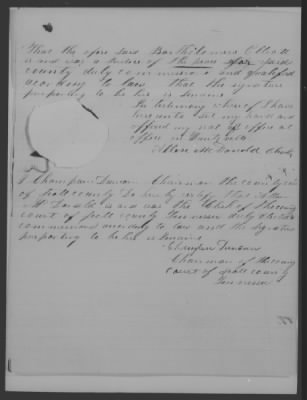 That the afore said Bartholomew Elliott
is and was a Justice of the peace for said
county duly commission and qualified
according to law that the signature
purporting to be his is genuine
In testimony whereof I have
hereunto set my hand and
affixed my of office at
office in Huntsville
McDonald Clerk
I Champion Duncan Chairman of the county court
of Scott county do hereby certify that Allen
McDonald is and was the Clerk of the county
court of Scott county Tennessee duly elected
commission according to law and the signature
purporting to be his is genuine
Champion Duncan
Chairman of the county
Court of Scott county
Tennessee